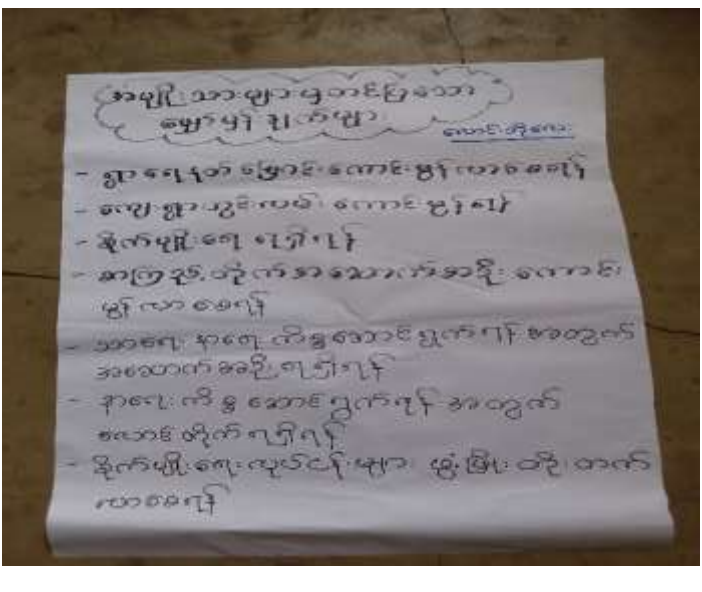 အမျိုးသားများမှတင်ပြသော
မျှော်မှန်းချက်များ
- ရွာရေနုတ်မြောင်းကောင်းမွန်လာစေရန်
- ကျေးရွာတွင်းလမ်းကောင်းမွန်ရန်
- စိုက်ပျိုးရေရရှိရန်
- စာကြည့်တိုက်အဆောက်အဦးကောင်း
မွန်လာစေရန်
- သာရေးနာရေးကိစ္စဆောင်ရွက်ရန်အတွက်
အဆောက်အဦးရရှိရန်
- နာရေးကိစ္စဆောင်ရွက်ရန်အတွက်
ရရှိရန်
- စိုက်ပျိုးရေးလုပ်ငန်းများဖွံ့ဖြိုးတိုးတက်
လာစေရန်